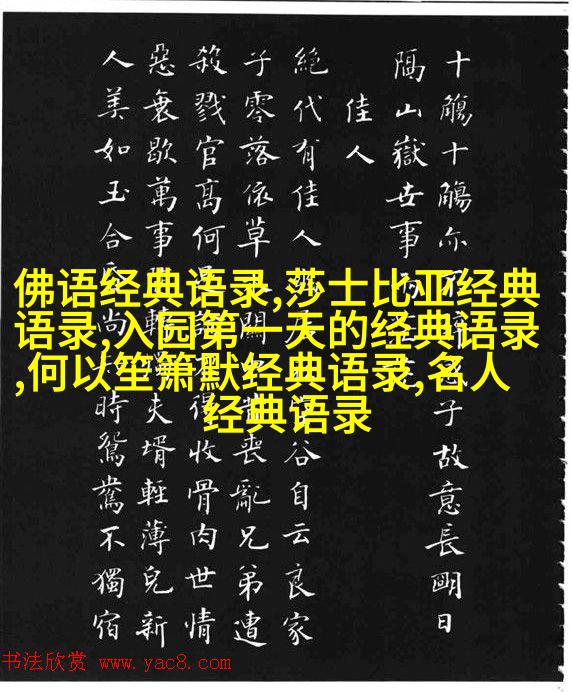 十觴十觴亦不子故意長明日
隔山嶽世事
佳人
絕代有佳人谷自云良家
子零落依草關喪亂兄弟遭
殺戮官高何得收骨肉世情
惡衰歇萬事轉夫壻輕薄兒新
人美如玉合尚時鴛鴦不獨宿
佛语经典语录,莎士比亚经典
语录,入园第一天的经典语录
,何以笙箫默经典语录,名人
经典语录
书法欣赏 www.yac8.com